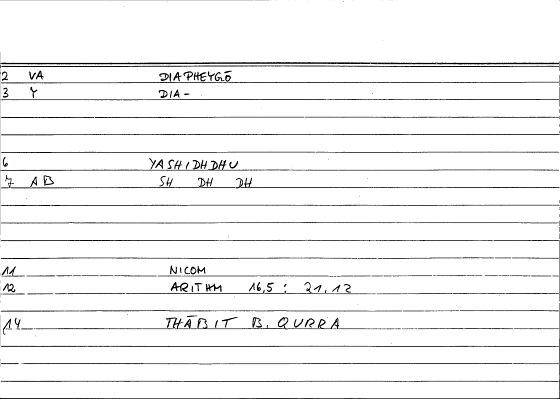 2 VA DIAPHEYGŌ
3 Y DIA-
6 YASHIDHDHU
7 AB SH DH DH
11 NICOM
12 ARITHM 16,5 : 21,12
14 THĀBIT B. QURRA